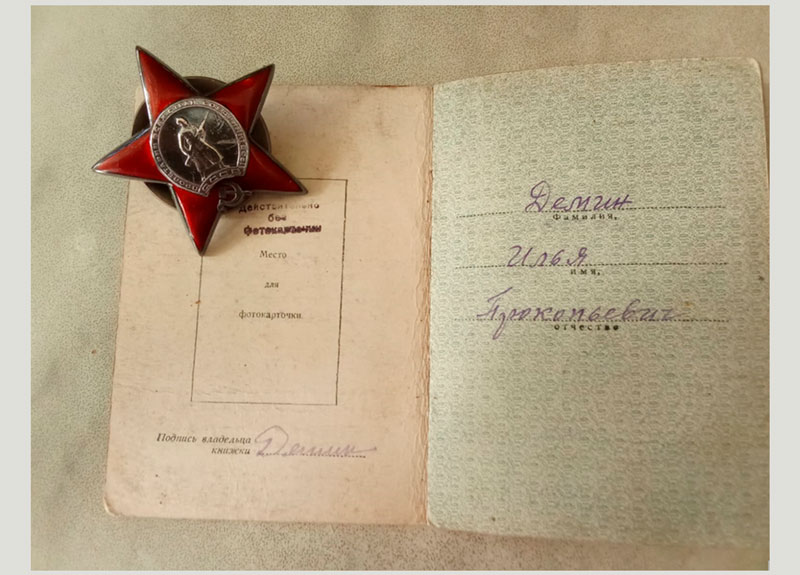 Действительно
без
фотокарточки
Место
для
фотокарточки
Подпись владельца
книжки Демин
Демин
Фамилия,
Илья
имя,
Прокопьевич
отчество